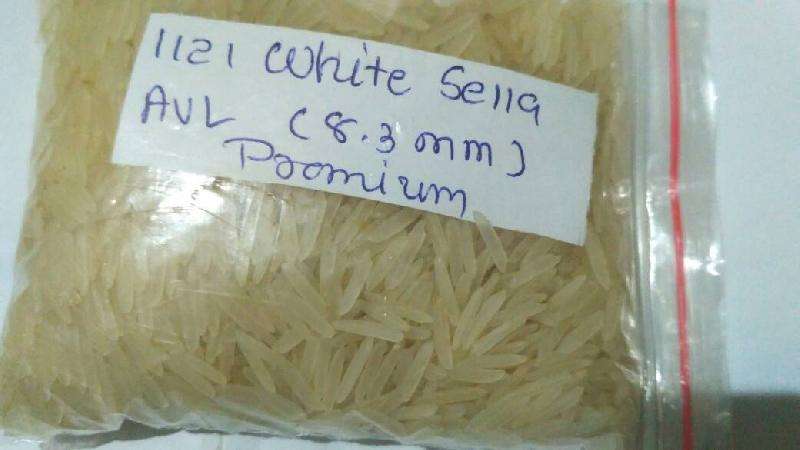 1121 White Sella
AVL (8.3 mm)
Premium